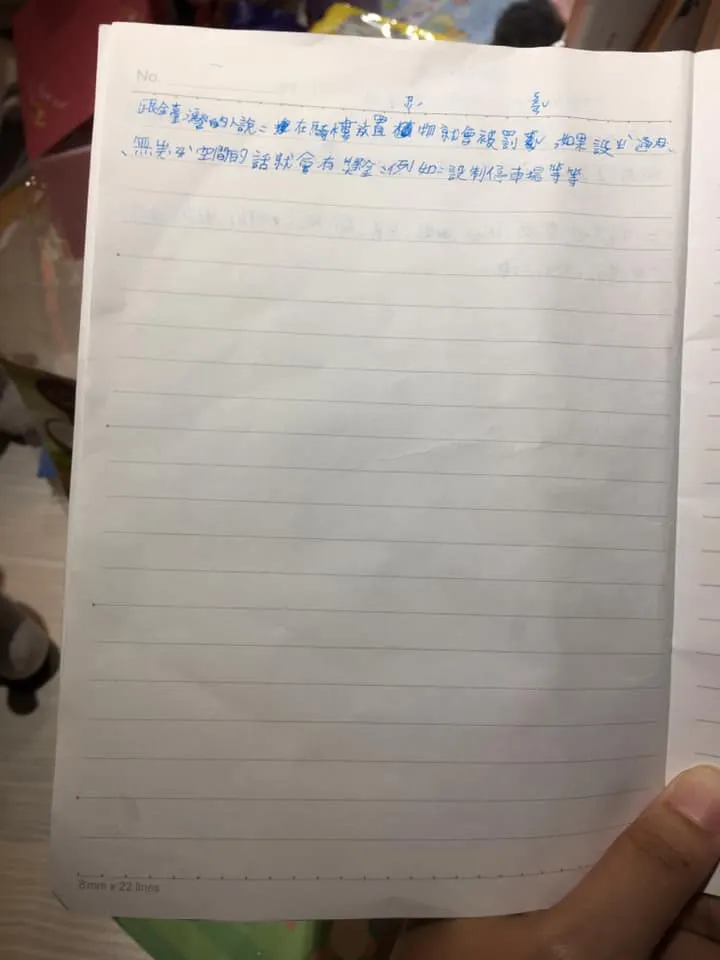 No.
ㄕˊ ㄎㄨㄢˇ
跟臺灣的人說：在騎樓放置植物就會被罰款 如果設出通用、
、無 空間的話就會有獎金：例如：設制停車場等等
8mm x 22 lines